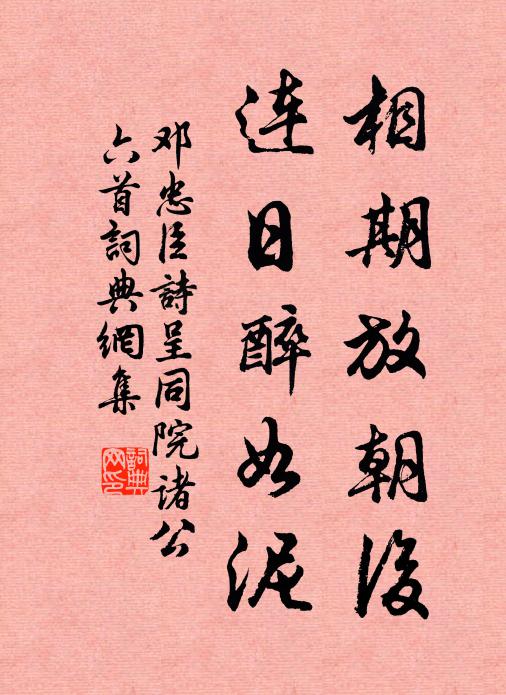 相期放朝后
连日醉如泥
邓忠臣詩呈同院诸公
六首詞典網集
詞典網印